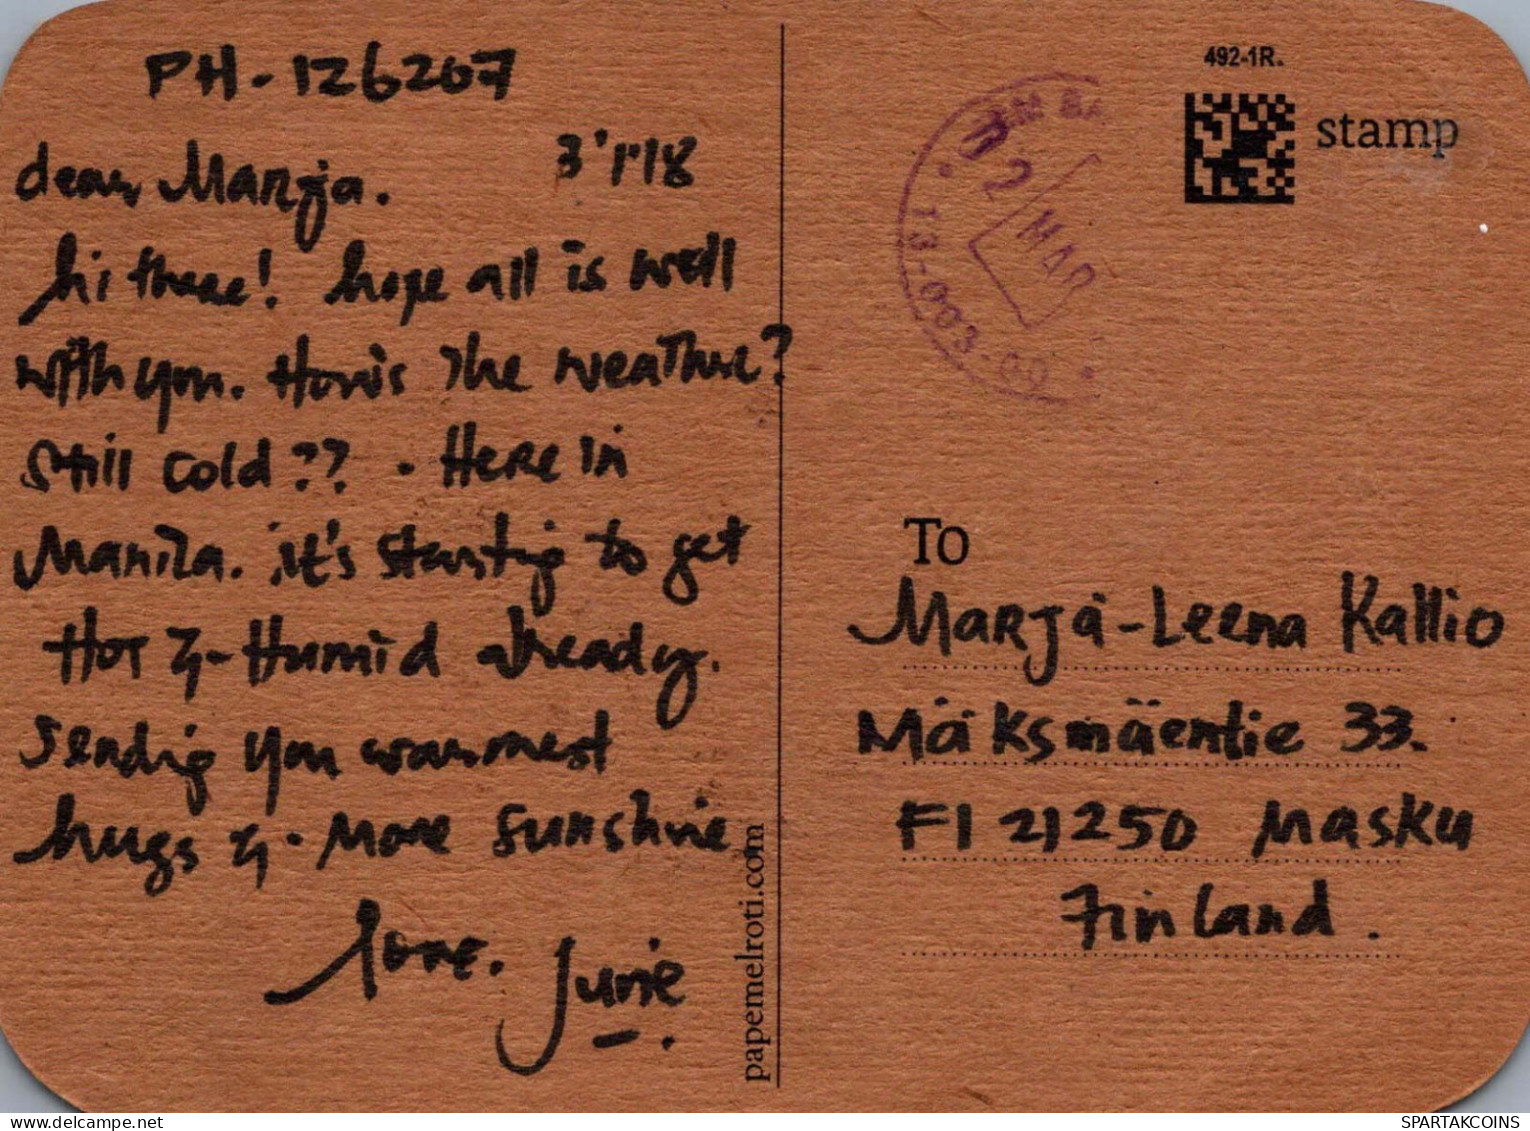 PH-126207
dear Marja. 3'1'18
hi there! hope all is well
with you. How's the weather?
still cold?? . Here in
Manila. it's starting to get
Hot & Humid already.
sending you warmest
hugs & more sunshine
love.
June
papemelroti.com
492-1R.
stamp
2 MAR
13-003-00
To
Marja-Leena Kallio
Mäksmäentie 33.
FI 21250 Masku
Finland.
SPARTAKCOINS